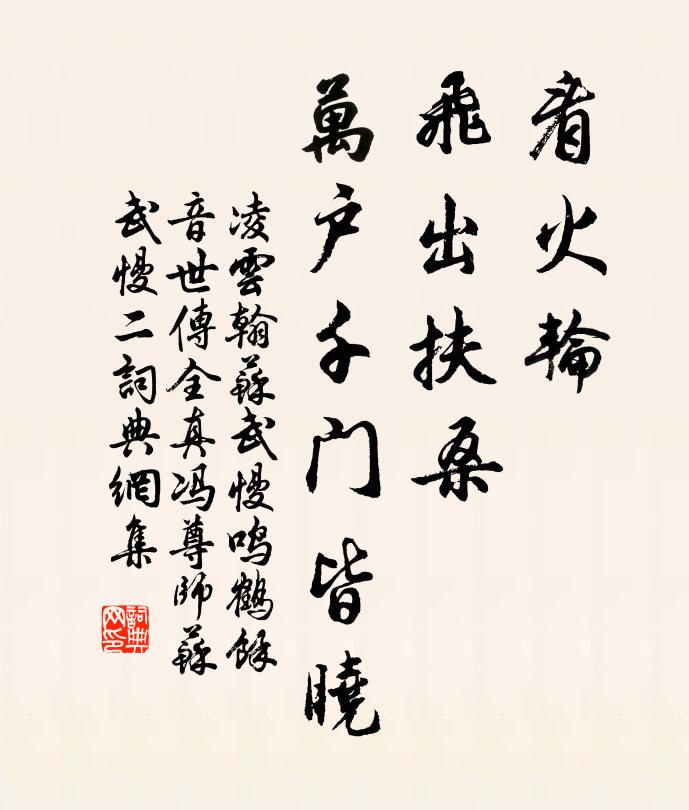 看火輪
飛出扶桑
萬户千門皆曉
凌雲翰蘇武慢鳴鶴餘
音世傳全真冯尊師蘇
武慢二詞典網集
詞典
网印